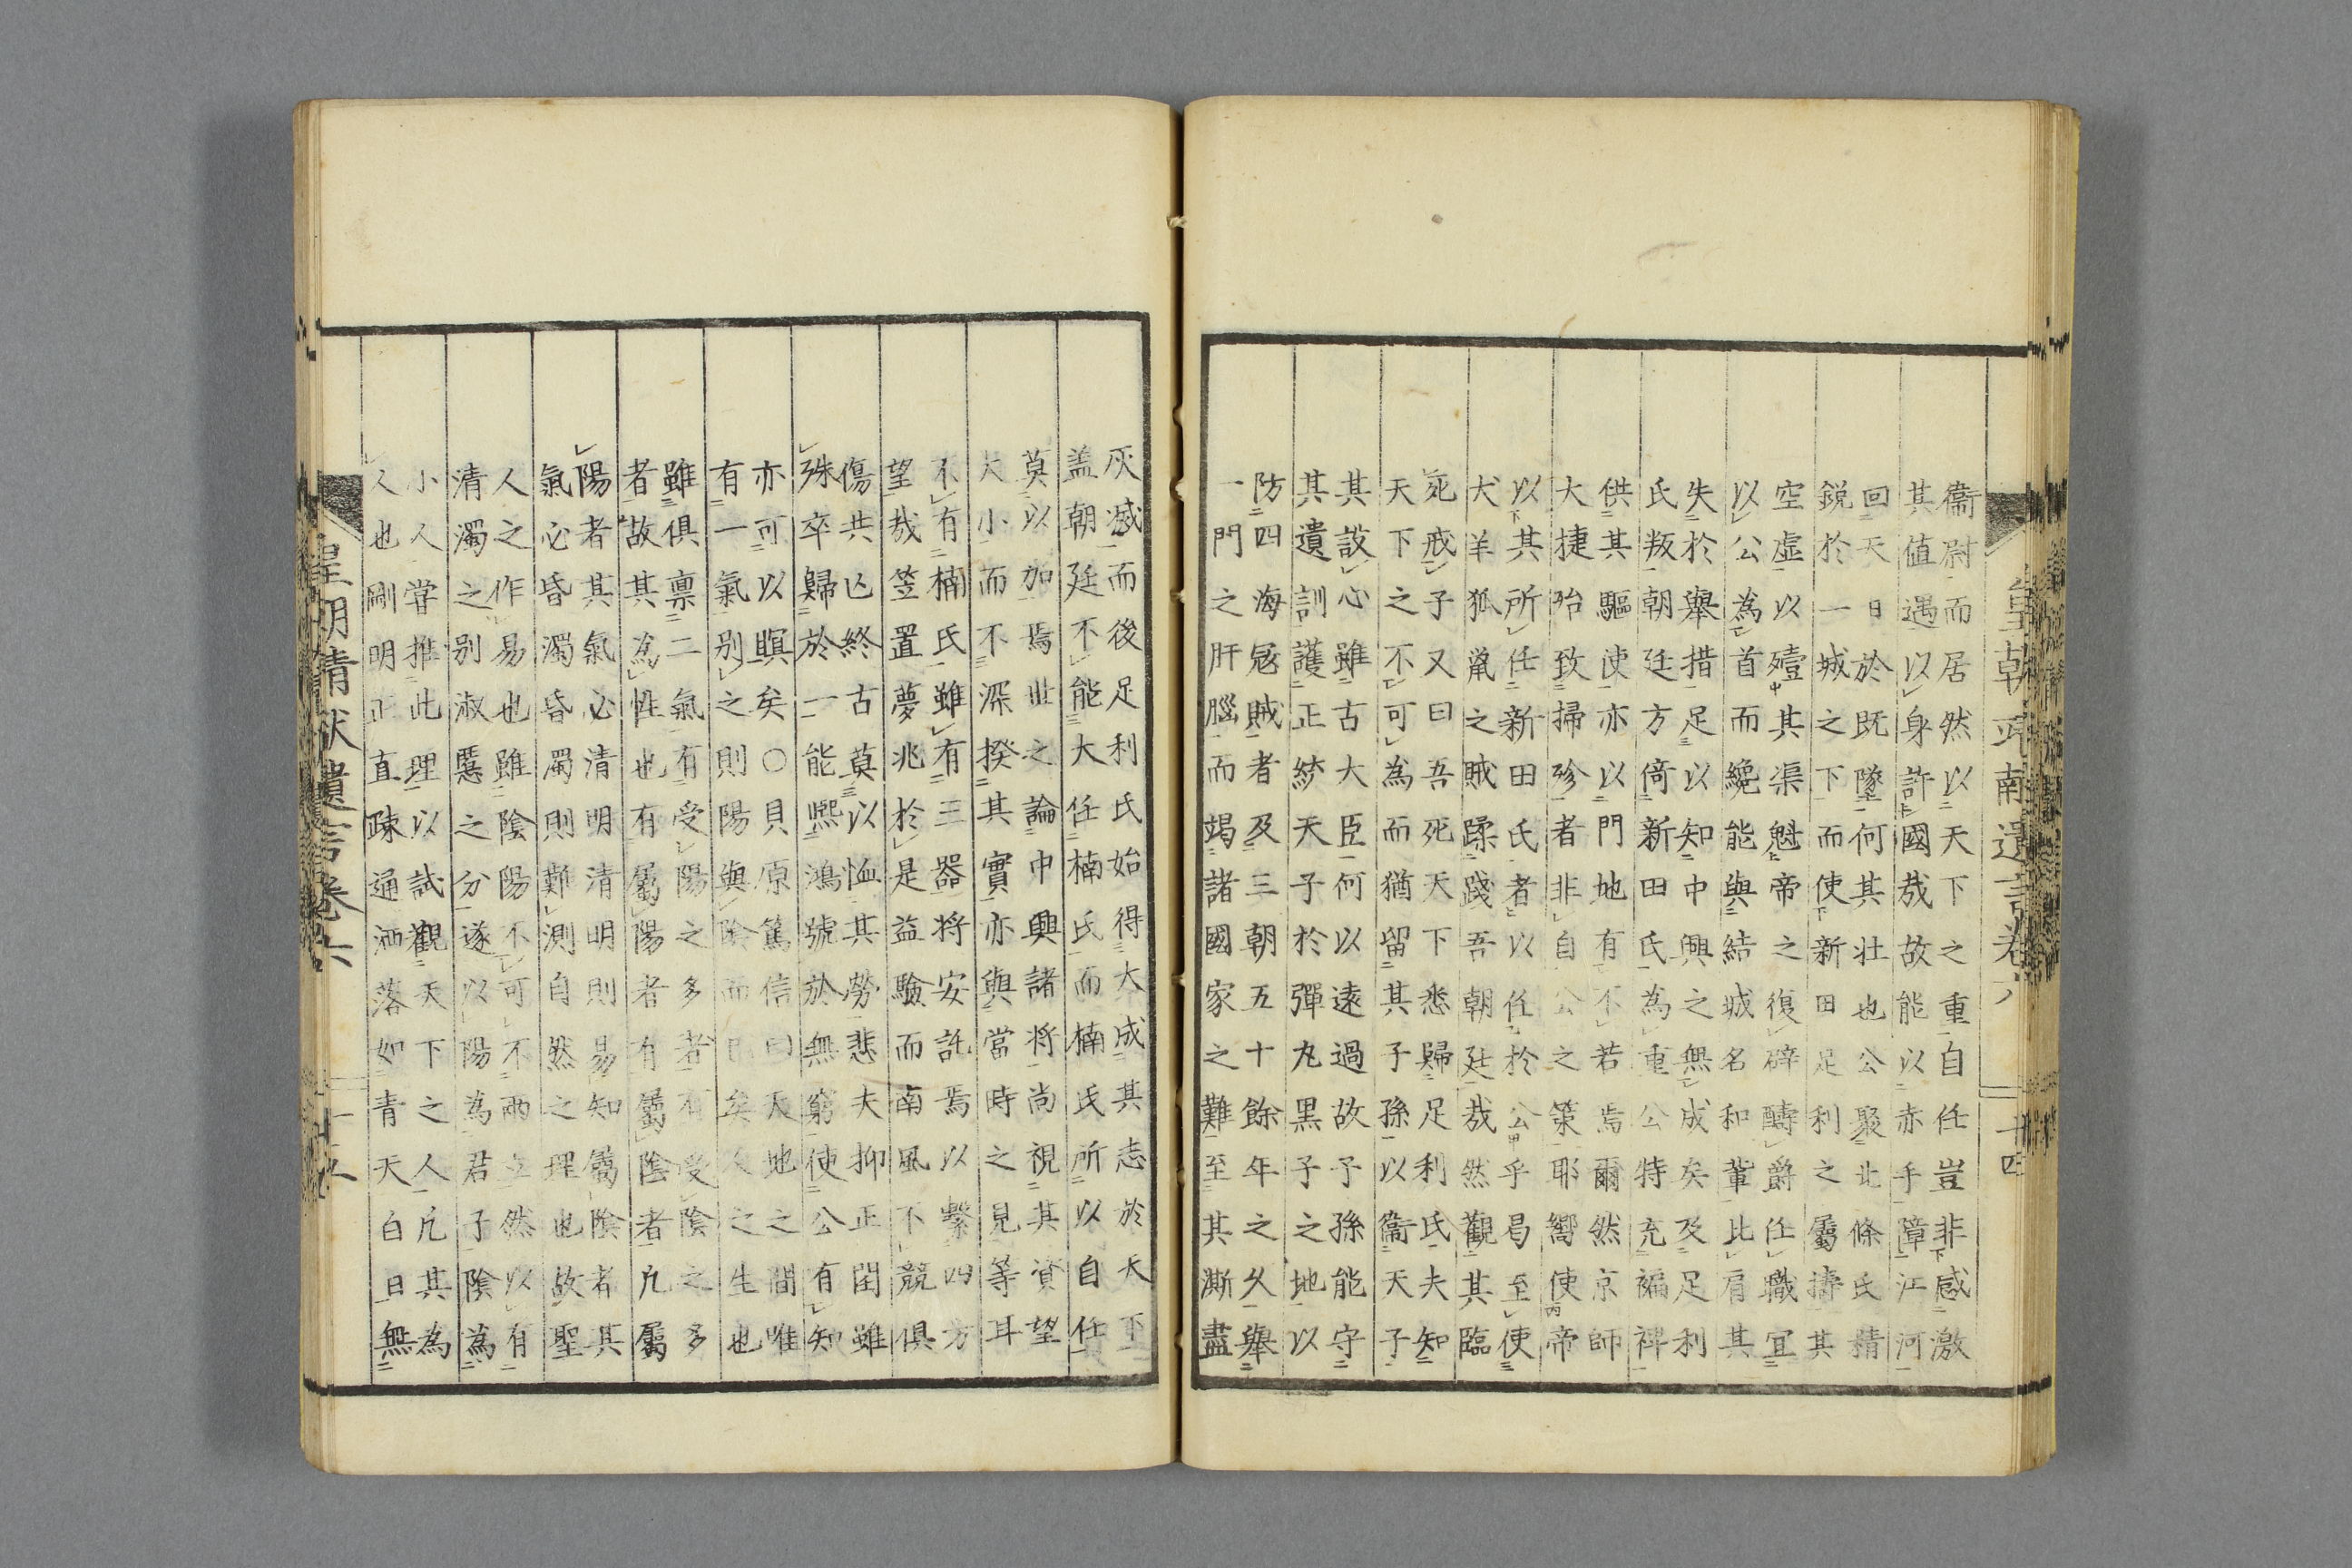 衞尉而居然以天下之重自任豈非感激
其値遇以身許國哉故能以赤手障江河
回天日於既墜何其壮也公聚北條氏精
鋭於一城之下而使新田足利之屬擣其
空虚以殪其渠魁帝之復辟酬爵任職宜
以公為首而纔能與結城名和輩比肩其
失於舉措足以知中興之無成矣及足利
氏叛朝廷方倚新田氏為重公特充褊裨
供其驅使亦以門地有不若焉爾然京師
大捷殆致掃殄者非自公之策耶嚮使帝
以其所任新田氏者以任於公乎曷至使
犬羊狐鼠之賊蹂踐吾朝廷哉然觀其臨
死戒子又曰吾死天下悉歸足利氏夫知
天下之不可為而猶留其子孫以衞天子
其設心雖古大臣何以遠過故予孫能守
其遺訓護正統天子於彈丸黒子之地以
防四海冦賊者及三朝五十餘年之久舉
一門之肝腦而竭諸國家之難至其澌盡
灰滅而後足利氏始得大成其志於天下
盖朝廷不能大任楠氏而楠氏所以自任
莫以加焉世之論中興諸将尚視其資望
大小而不深揆其實亦與當時之見等耳
不有楠氏雖有三器将安託焉以繫四方
望哉笠置夢兆於是益驗而南風不競俱
傷共亡終古莫以恤其勞悲夫抑正閏雖
殊卒歸於一能熈鴻號於無窮使公有知
亦可以瞑矣〇貝原篤信曰天地之間唯
有一氣別之則陽與陰而已矣人之生也
雖俱禀二氣有受陽之多者有受陰之多
者故其為性也有屬陽者有屬陰者凡屬
陽者其氣必清明清明則易知屬陰者其
氣必昏濁昏濁則難測自然之理也故聖
人之作易也雖陰陽不可不兩立然以有
清濁之別淑慝之分遂以陽為君子陰為
小人甞推此理以試觀天下之人凡其為
人也剛明正直疎通洒落如青天白日無